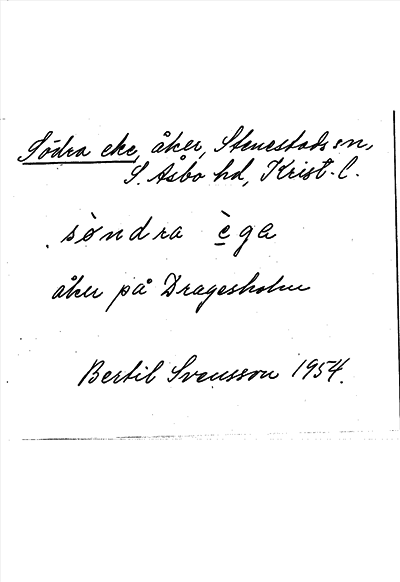 Södra eke, åker, Stenestads sn,
S. Åsbo hd, Krist. l.
sǿndra ègə
åker på Dragesholm
Bertil Svensson 1954.